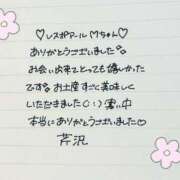 ♡レスポアール Mちゃん♡
ありがとうございました。
お会い出来てとっても嬉しかった
です。お土産すごく美味しく
いただきました○:)
本当にありがとうございました♡
芹沢